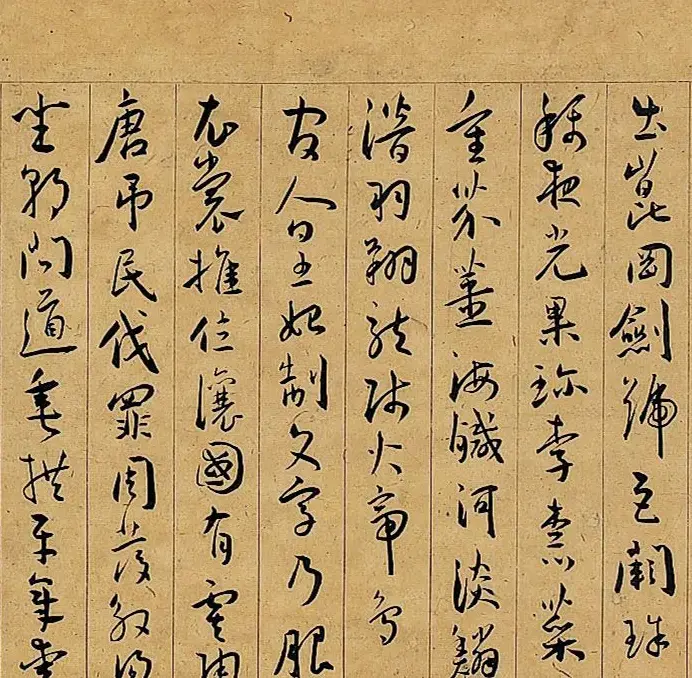 出崑岡劍號巨闕珠
稱夜光果珍李柰菜
重芥薑海鹹河淡鱗
潛羽翔龍師火帝鳥
官人皇始制文字乃服
衣裳推位讓國有虞陶
唐弔民伐罪周發殷湯
坐朝問道垂拱平章愛